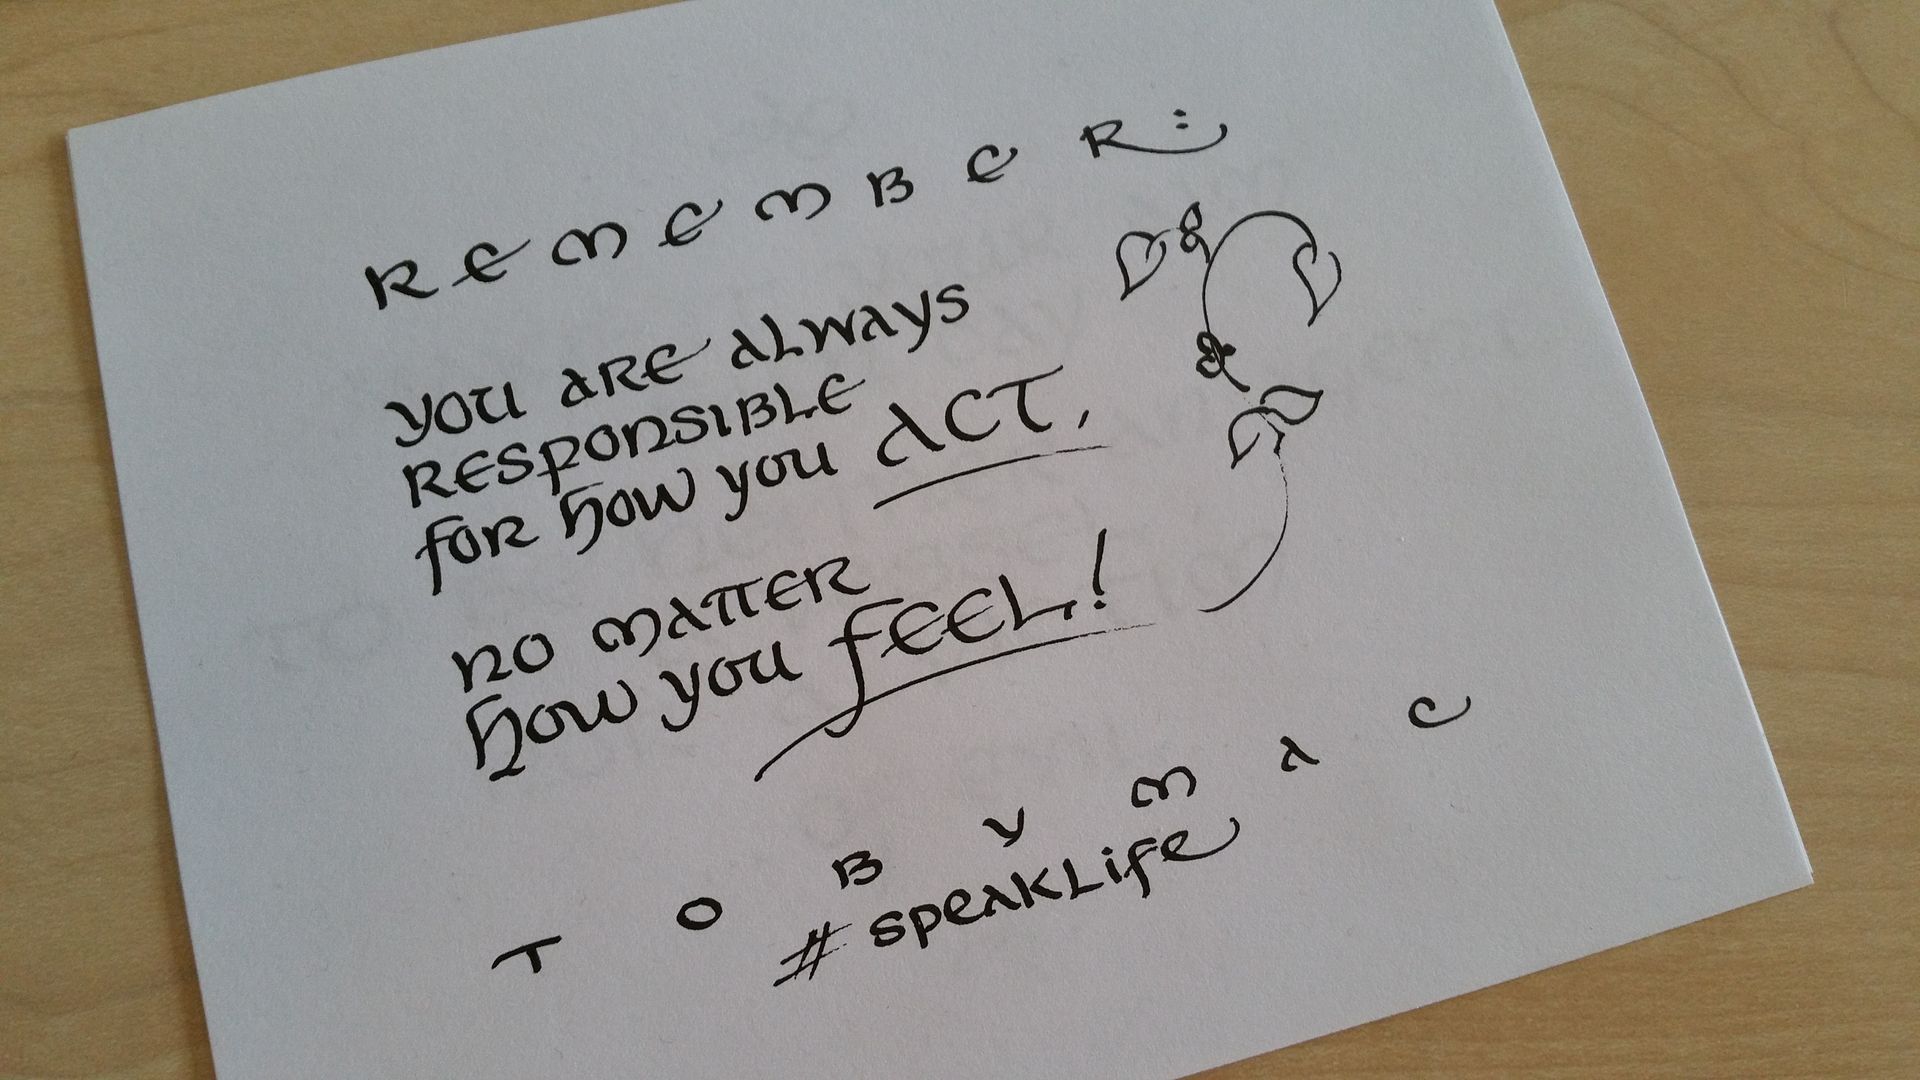 REMEMBER:
you are always
responsible
for how you ACT,
no matter
how you FEEL!
TOBYMAC
#speaklife